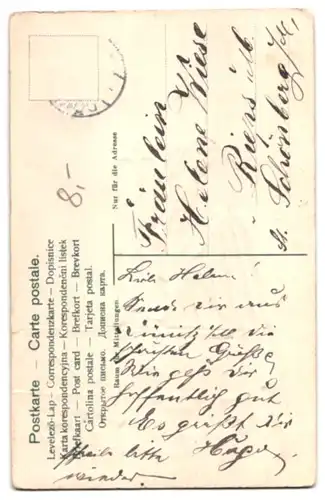 Postkarte – Carte postale.
Levelező-Lap – Correspondenzkarte – Dopisnice
Karta korespondencyjna – Korespondenční lístek
Briefkaart – Post card – Brefkort – Brevkort
Cartolina postale – Tarjeta postal.
Открытое письмо. Дописна карта.
8,-
Raum für Mitteilungen
Nur für die Adresse
Fräulein
Helene Wiese
Schönberg
Liebe Helene!
Sende dir aus
die
Grüße
Wie geht dir
hoffentlich gut
Es grüßt dir
Hugo
bitte
wieder.